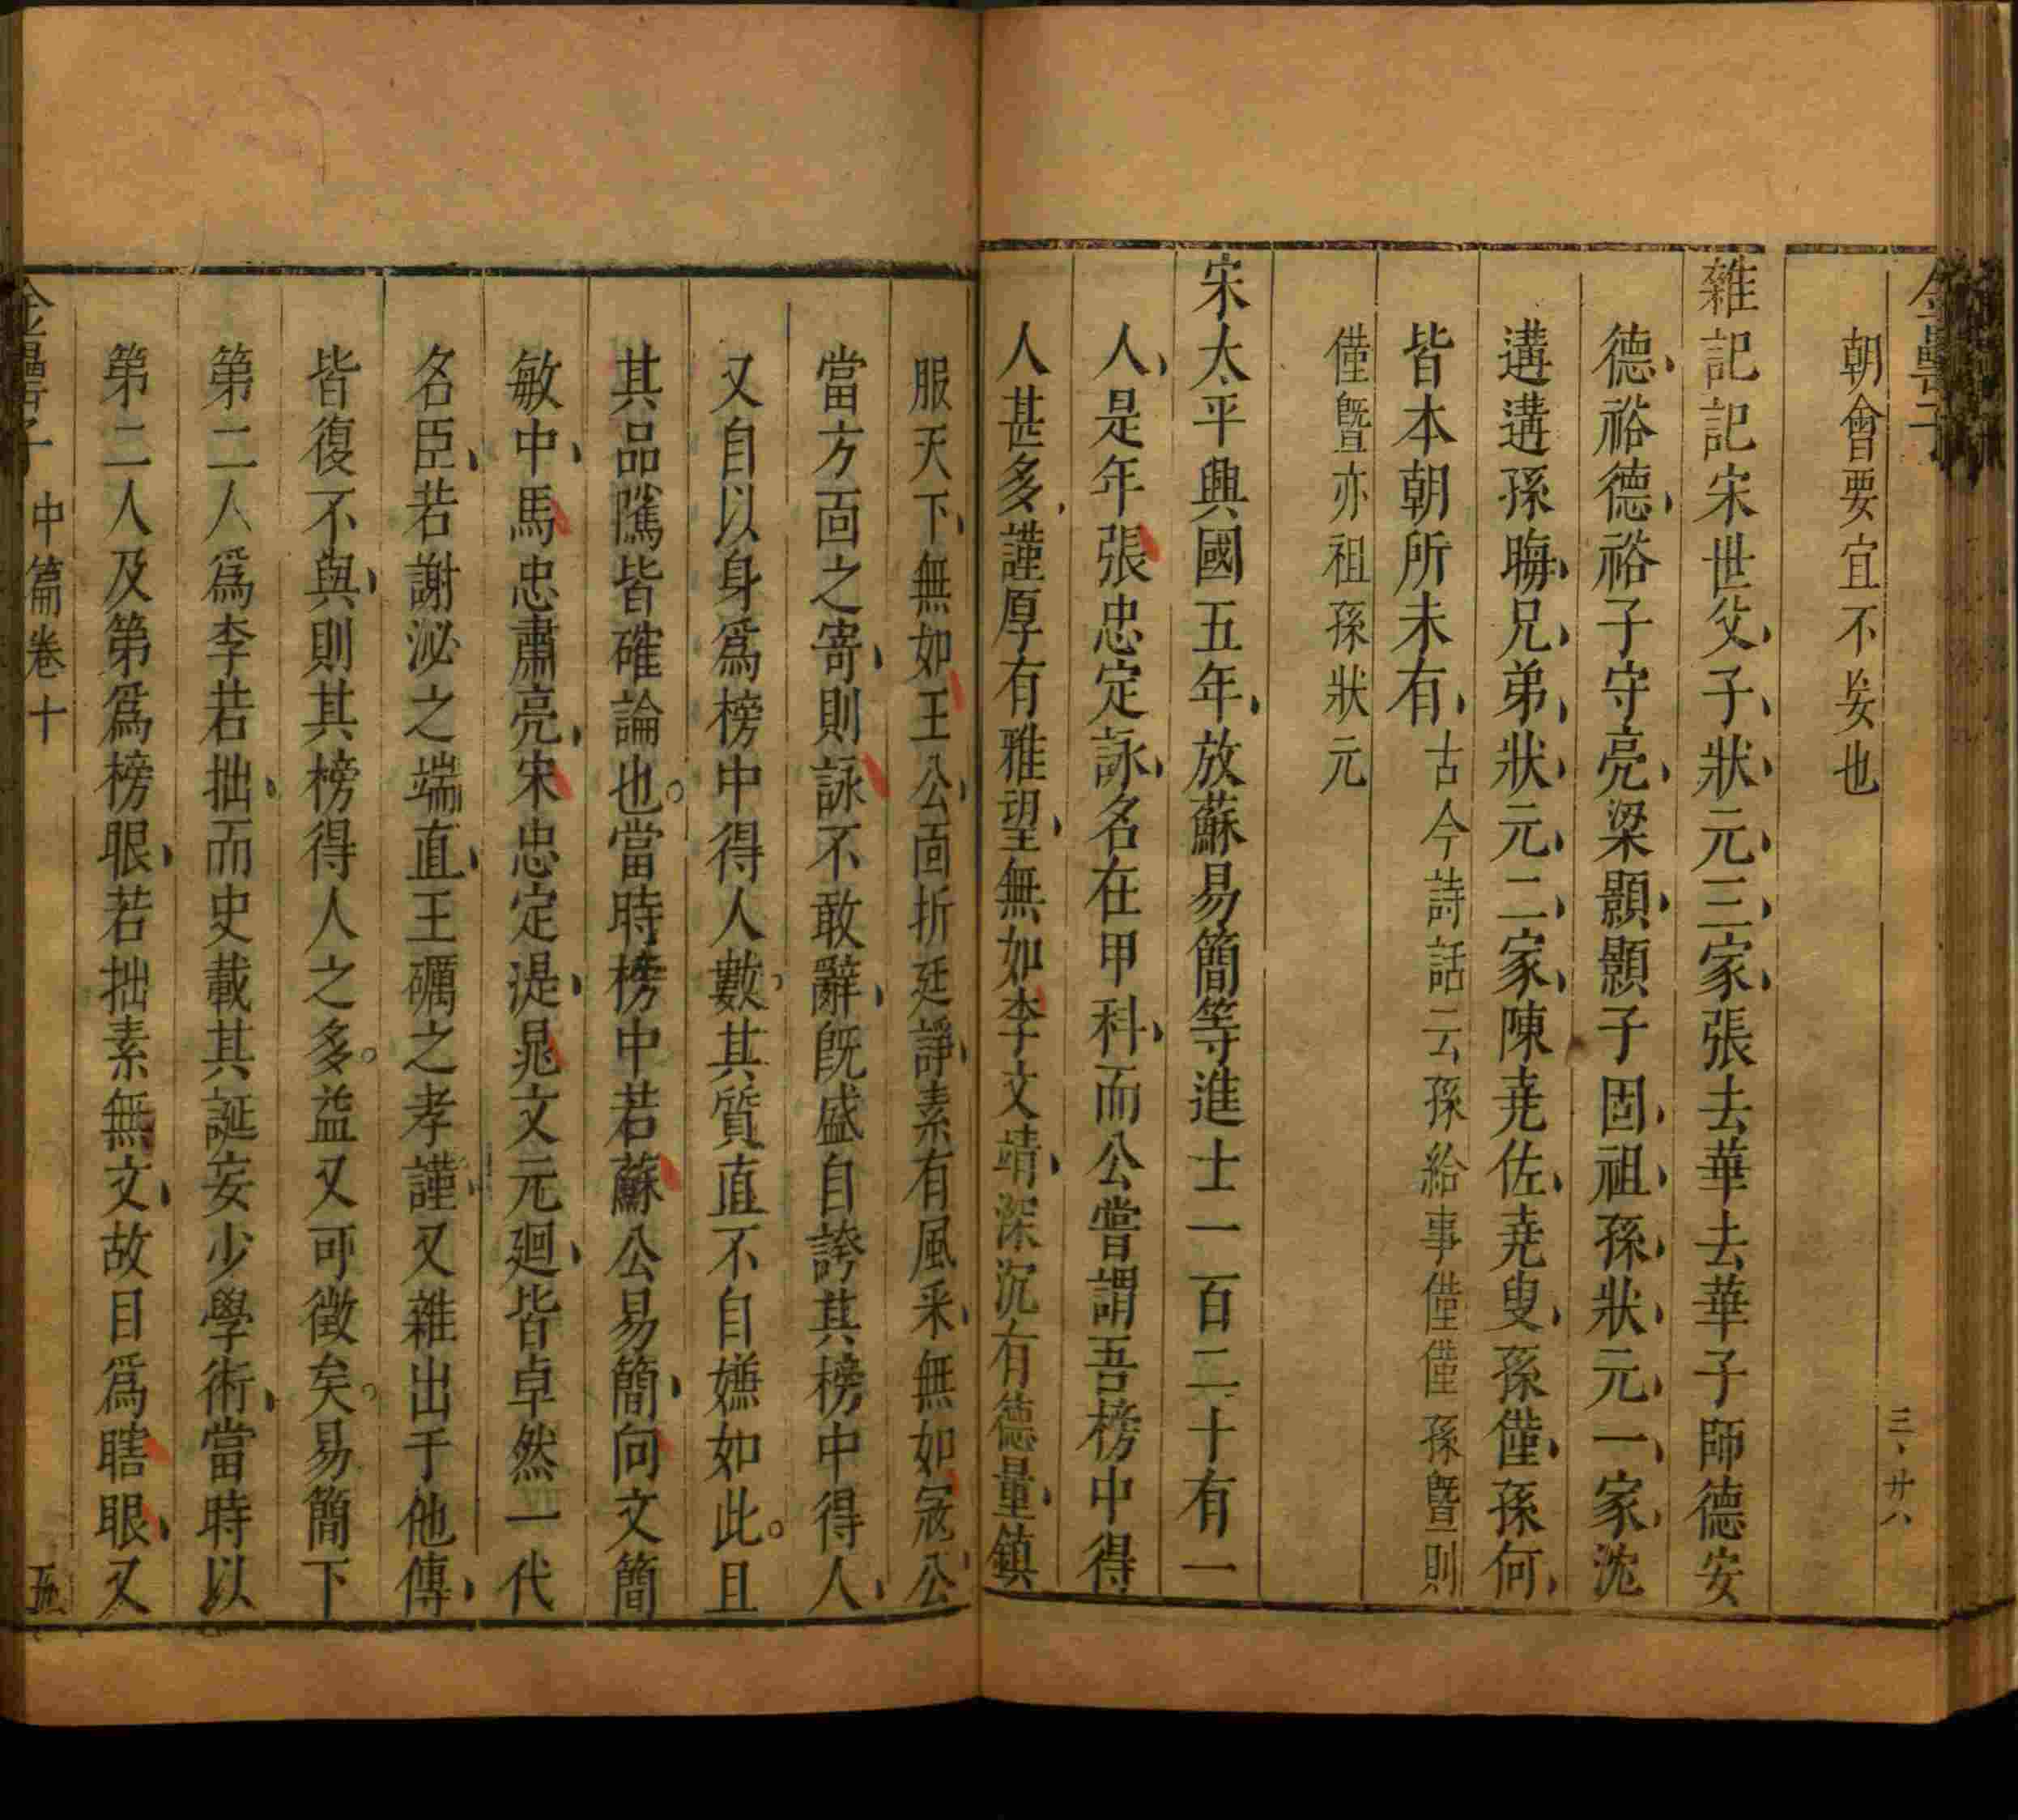 金罍子
三、廿八
朝會要宜不妄也
雜記記宋世父子狀元三家張去華去華子師德安
德裕德裕子守亮梁顥顥子固祖孫狀元一家沈
遘遘孫晦兄弟狀元二家陳堯佐堯叟孫僅孫何
皆本朝所未有古今詩話云孫給事僅僅孫曁則
僅曁亦祖孫狀元
宋太平興國五年放蘇易簡等進士一百二十有一
人是年張忠定詠名在甲科而公嘗謂吾榜中得
人甚多謹厚有雅望無如李文靖深沉有德量鎮
服天下無如王公面折廷諍素有風采無如宼公
當方面之寄則詠不敢辭旣盛自誇其榜中得人
又自以身爲榜中得人數其質直不自嫌如此。且
其品隲皆確論也。當時榜中若蘇公易簡向文簡
敏中馬忠肅亮宋忠定湜晁文元迴皆卓然一代
名臣若謝泌之端直王礪之孝謹又雜出于他傳
皆復不與則其榜得人之多。益又可徵矣。易簡下
第二人爲李若拙而史載其誕妄少學術當時以
第二人及第爲榜眼若拙素無文故目爲瞎眼又
金罍子 中篇卷十 五